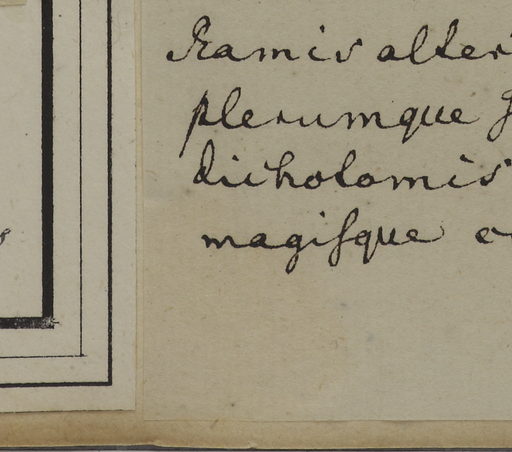 Ramis alter
plerumque
dichotomis
magisque